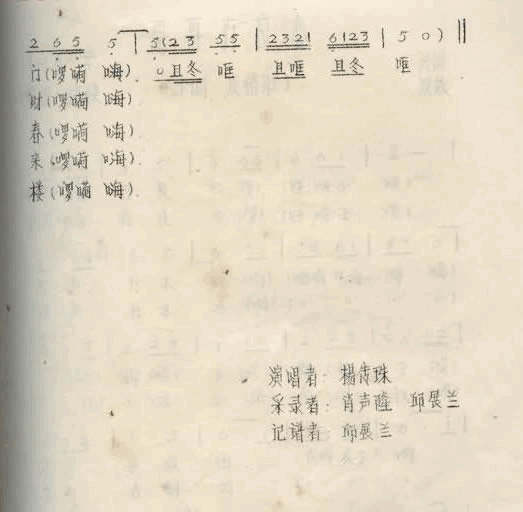 2 6 5 5 | 5(2 3 5 5 | 2321 6123 | 5 0) ‖
门(啰嗬 嗨). 0且冬 哐 且哐 且冬 哐
财(啰嗬 嗨).
春(啰嗬 嗨).
来(啰嗬 嗨).
楼(啰嗬 嗨).
演唱者: 杨青珠
采录者: 肖声隆 邱展兰
记谱者 邱展兰